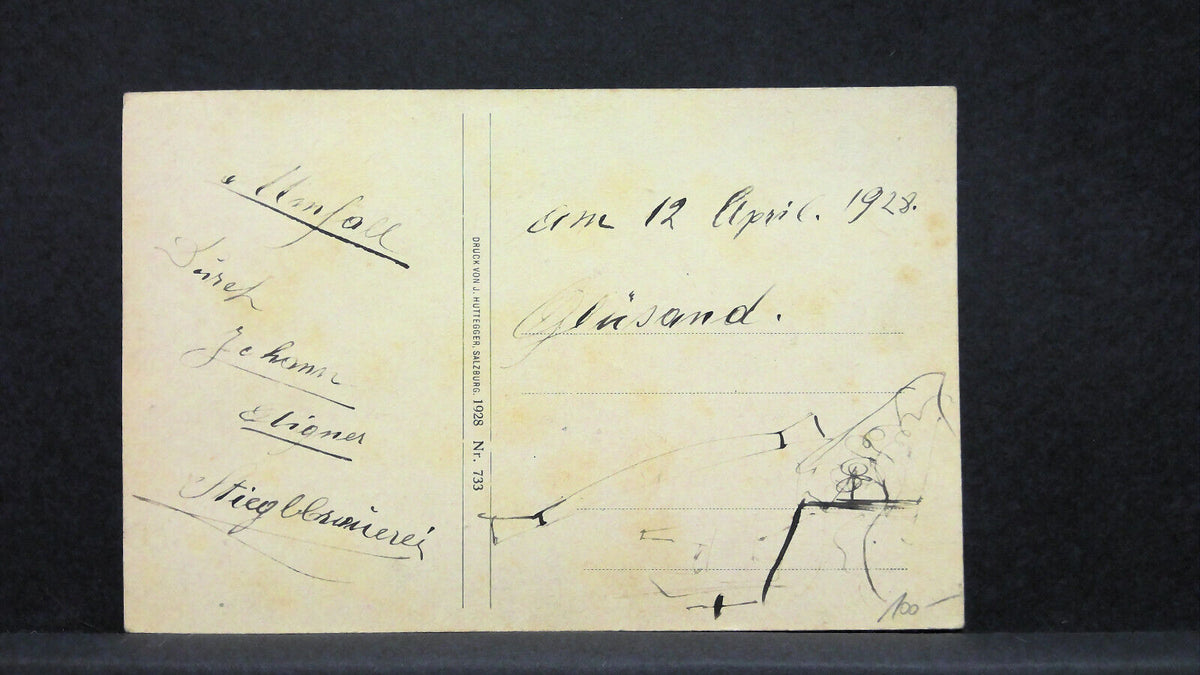 Unfall
Durch
Johann
Aigner
Stieglbrauerei
DRUCK VON J. HUTTEGGER, SALZBURG. 1928 Nr. 733
am 12 April. 1928.
Glüsand.
100-